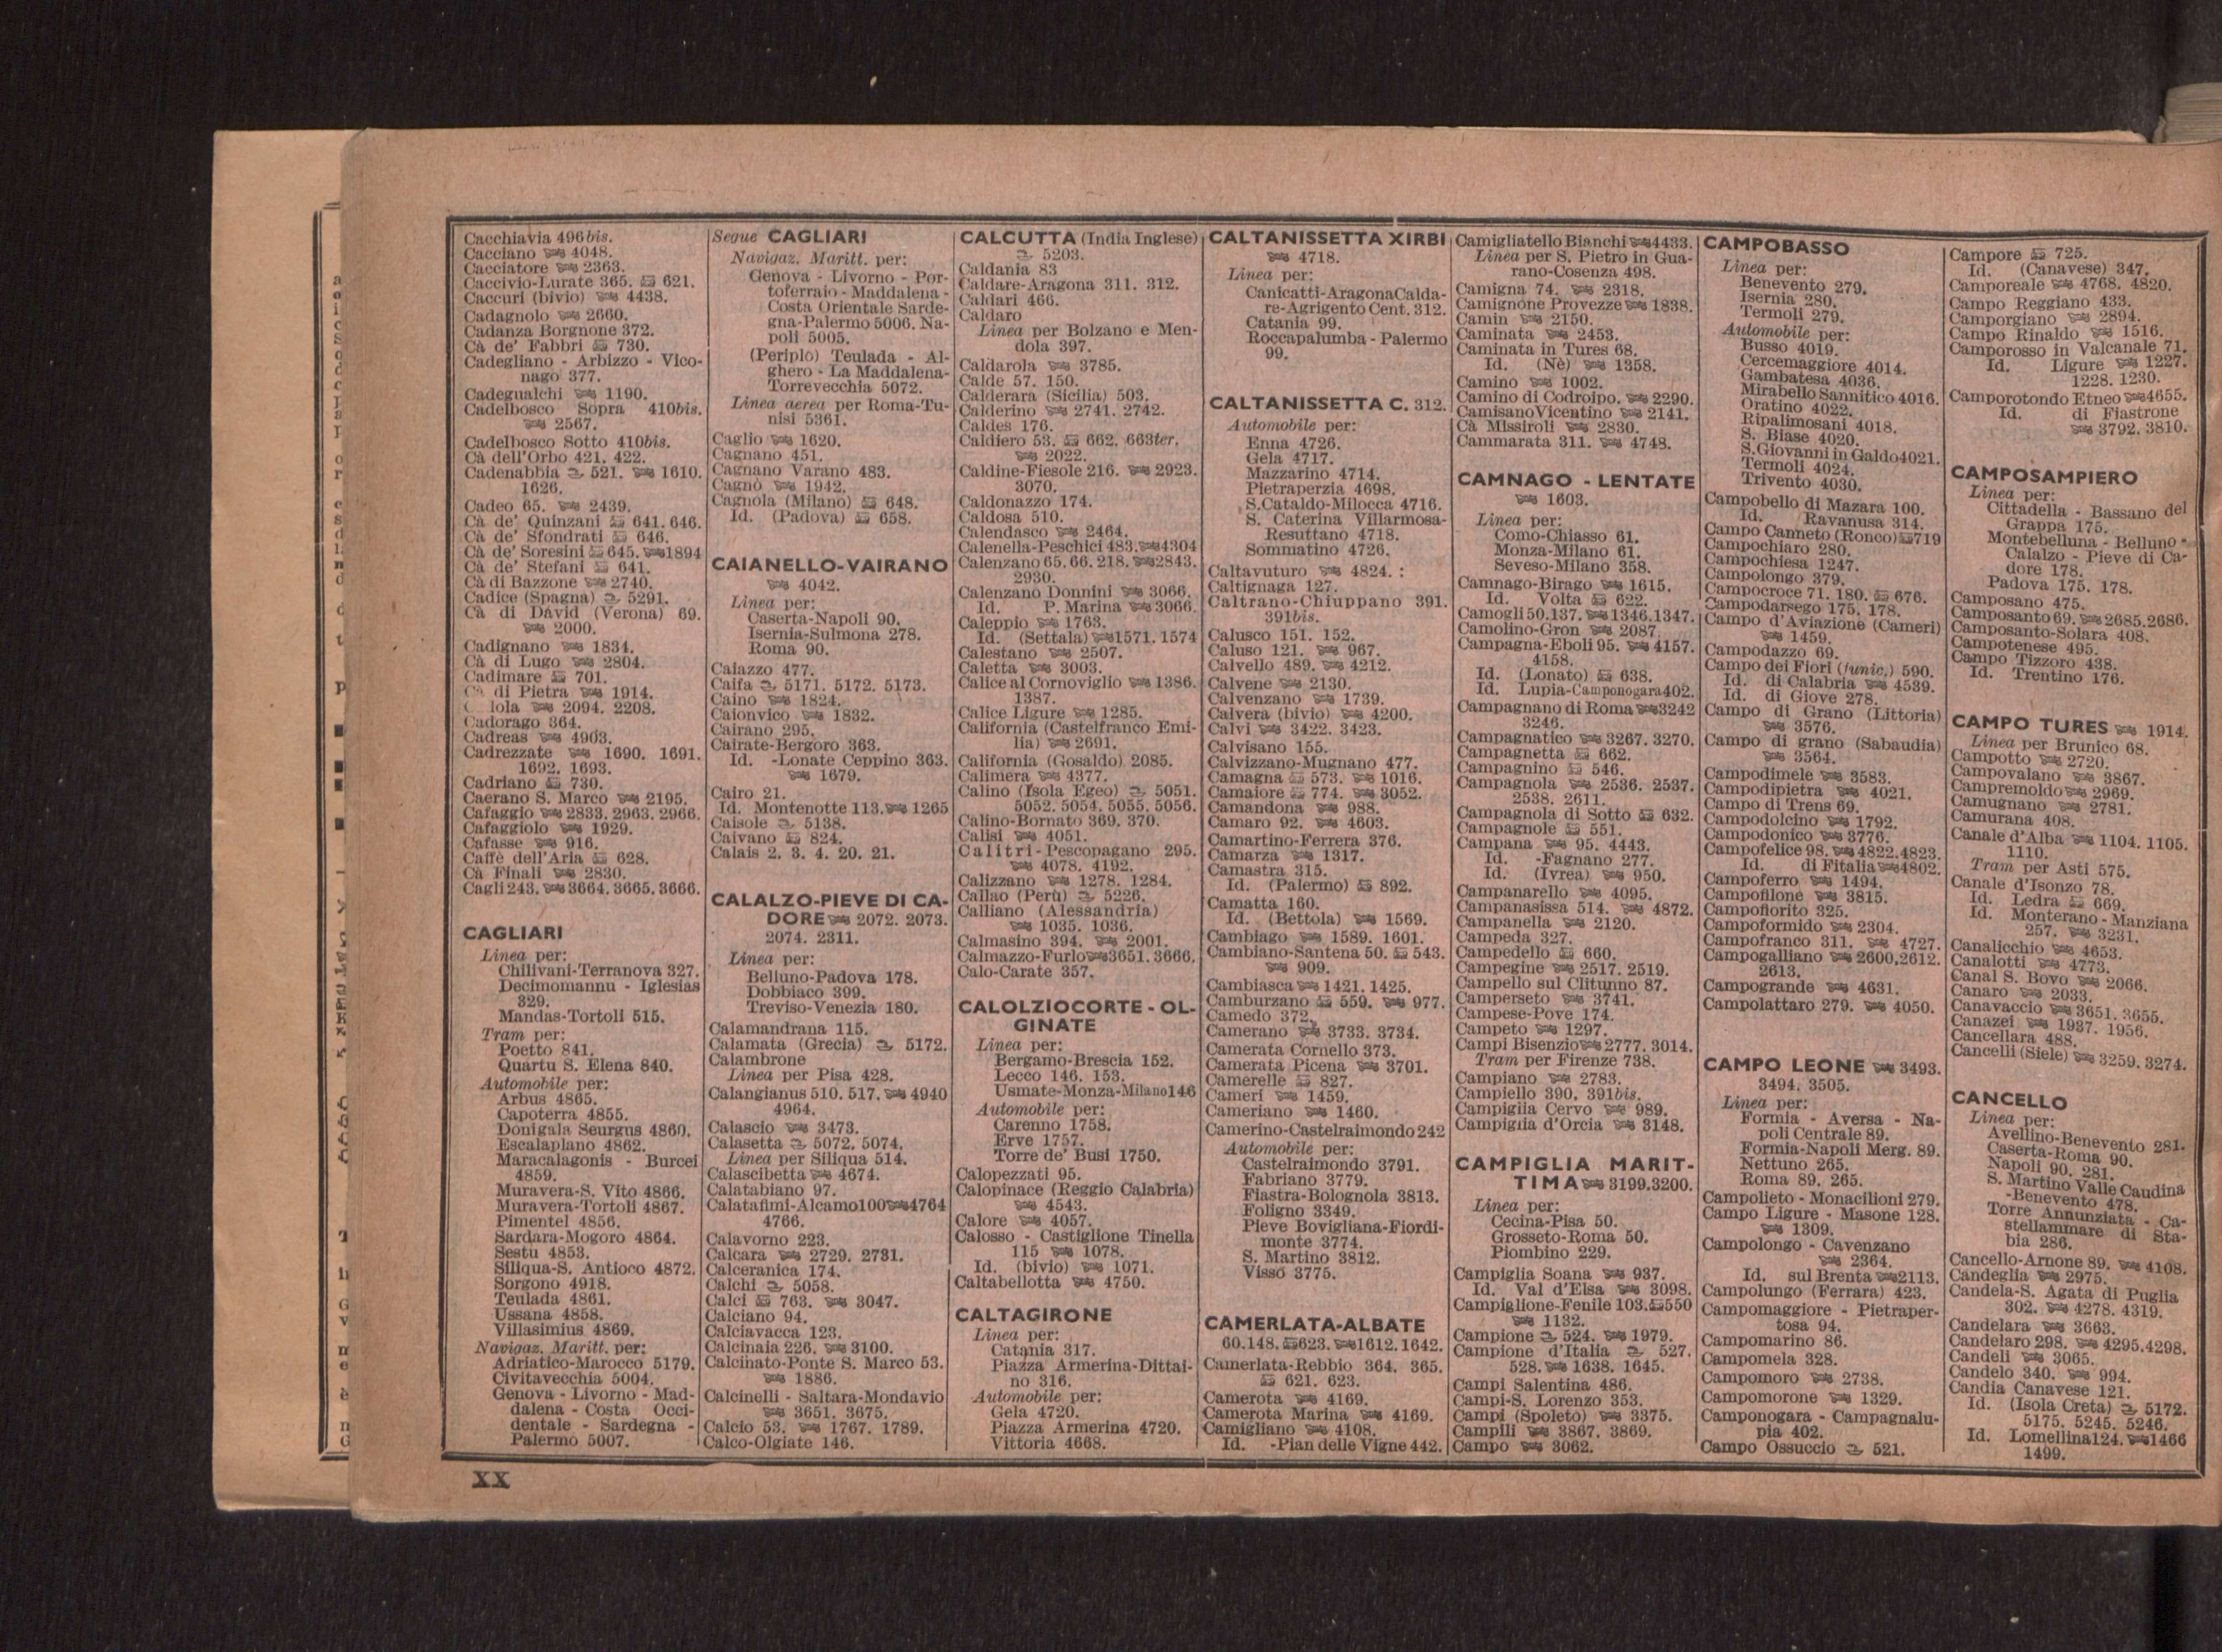 Cacchiavia 496bis.
Cacciano 4048.
Cacciatore 2363.
Caccivio-Lurate 365. 621.
Caccuri (bivio) 4438.
Cadagnolo 2660.
Cadanza Borgnone 372.
Cà de' Fabbri 730.
Cadegliano - Arbizzo - Vico-
nago 377.
Cadegualchi 1190.
Cadelbosco Sopra 410bis.
2567.
Cadelbosco Sotto 410bis.
Cà dell'Orbo 421. 422.
Cadenabbia 521. 1610.
1626.
Cadeo 65. 2439.
Cà de' Quinzani 641. 646.
Cà de' Sfondrati 646.
Cà de' Soresini 645. 1894
Cà de' Stefani 641.
Cà di Bazzone 2740.
Cadice (Spagna) 5291.
Cà di David (Verona) 69.
2000.
Cadignano 1834.
Cà di Lugo 2804.
Cadimare 701.
Cà di Pietra 1914.
iola 2094. 2208.
Cadorago 364.
Cadreas 4903.
Cadrezzate 1690. 1691.
1692. 1693.
Cadriano 730.
Caerano S. Marco 2195.
Cafaggio 2833. 2963. 2966.
Cafaggiolo 1929.
Cafasse 916.
Caffè dell'Aria 628.
Cà Finali 2830.
Cagli 243. 3664. 3665. 3666.
CAGLIARI
Linea per:
Chilivani-Terranova 327.
Decimomannu - Iglesias
329.
Mandas-Tortoli 515.
Tram per:
Poetto 841.
Quartu S. Elena 840.
Automobile per:
Arbus 4865.
Capoterra 4855.
Donigala Seurgus 4860.
Escalaplano 4862.
Maracalagonis - Burcei
4859.
Muravera-S. Vito 4866.
Muravera-Tortoli 4867.
Pimentel 4856.
Sardara-Mogoro 4864.
Sestu 4853.
Siliqua-S. Antioco 4872.
Sorgono 4918.
Teulada 4861.
Ussana 4858.
Villasimius 4869.
Navigaz. Maritt. per:
Adriatico-Marocco 5179.
Civitavecchia 5004.
Genova - Livorno - Mad-
dalena - Costa Occi-
dentale - Sardegna -
Palermo 5007.
Segue CAGLIARI
Navigaz. Maritt. per:
Genova - Livorno - Por-
toferraio - Maddalena -
Costa Orientale Sarde-
gna-Palermo 5006. Na-
poli 5005.
(Periplo) Teulada - Al-
ghero - La Maddalena-
Torrevecchia 5072.
Linea aerea per Roma-Tu-
nisi 5361.
Caglio 1620.
Cagnano 451.
Cagnano Varano 483.
Cagnò 1942.
Cagnola (Milano) 648.
Id. (Padova) 658.
CAIANELLO-VAIRANO
4042.
Linea per:
Caserta-Napoli 90.
Isernia-Sulmona 278.
Roma 90.
Caiazzo 477.
Caifa 5171. 5172. 5173.
Caino 1824.
Caionvico 1832.
Cairano 295.
Cairate-Bergoro 363.
Id. -Lonate Ceppino 363.
1679.
Cairo 21.
Id. Montenotte 113. 1265
Caisole 5138.
Caivano 824.
Calais 2. 3. 4. 20. 21.
CALALZO-PIEVE DI CA-
DORE 2072. 2073.
2074. 2311.
Linea per:
Belluno-Padova 178.
Dobbiaco 399.
Treviso-Venezia 180.
Calamandrana 115.
Calamata (Grecia) 5172.
Calambrone
Linea per Pisa 428.
Calangianus 510. 517. 4940
4964.
Calascio 3473.
Calasetta 5072. 5074.
Linea per Siliqua 514.
Calascibetta 4674.
Calatabiano 97.
Calatafimi-Alcamo100 4764
4766.
Calavorno 223.
Calcara 2729. 2731.
Calceranica 174.
Calchi 5058.
Calci 763. 3047.
Calciano 94.
Calciavacca 123.
Calcinaia 226. 3100.
Calcinato-Ponte S. Marco 53.
1886.
Calcinelli - Saltara-Mondavio
3651. 3675.
Calcio 53. 1767. 1789.
Calco-Olgiate 146.
CALCUTTA (India Inglese)
5203.
Caldania 83
Caldare-Aragona 311. 312.
Caldari 466.
Caldaro
Linea per Bolzano e Men-
dola 397.
Caldarola 3785.
Calde 57. 150.
Calderara (Sicilia) 503.
Calderino 2741. 2742.
Caldes 176.
Caldiero 53. 662. 663ter.
2022.
Caldine-Fiesole 216. 2923.
3070.
Caldonazzo 174.
Caldosa 510.
Calendasco 2464.
Calenella-Peschici 483. 4304
Calenzano 65. 66. 218. 2843.
2930.
Calenzano Donnini 3066.
Id. P. Marina 3066.
Caleppio 1763.
Id. (Settala) 1571. 1574
Calestano 2507.
Caletta 3003.
Calice al Cornoviglio 1386.
1387.
Calice Ligure 1285.
California (Castelfranco Emi-
lia) 2691.
California (Gosaldo) 2085.
Calimera 4377.
Calino (Isola Egeo) 5051.
5052. 5054. 5055. 5056.
Calino-Bornato 369. 370.
Calisi 4051.
Calitri-Pescopagano 295.
4078. 4192.
Calizzano 1278. 1284.
Callao (Perù) 5226.
Calliano (Alessandria)
1035. 1036.
Calmasino 394. 2001.
Calmazzo-Furlo 3651. 3666.
Calo-Carate 357.
CALOLZIOCORTE - OL-
GINATE
Linea per:
Bergamo-Brescia 152.
Lecco 146. 153.
Usmate-Monza-Milano146
Automobile per:
Carenno 1758.
Erve 1757.
Torre de' Busi 1750.
Calopezzati 95.
Calopinace (Reggio Calabria)
4543.
Calore 4057.
Calosso - Castiglione Tinella
115 1078.
Id. (bivio) 1071.
Caltabellotta 4750.
CALTAGIRONE
Linea per:
Catania 317.
Piazza Armerina-Dittai-
no 316.
Automobile per:
Gela 4720.
Piazza Armerina 4720.
Vittoria 4668.
CALTANISSETTA XIRBI
4718.
Linea per:
Canicatti-AragonaCalda-
re-Agrigento Cent. 312.
Catania 99.
Roccapalumba - Palermo
99.
CALTANISSETTA C. 312.
Automobile per:
Enna 4726.
Gela 4717.
Mazzarino 4714.
Pietraperzia 4698.
S.Cataldo-Milocca 4716.
S. Caterina Villarmosa-
Resuttano 4718.
Sommatino 4726.
Caltavuturo 4824. :
Caltignaga 127.
Caltrano-Chiuppano 391.
391bis.
Calusco 151. 152.
Caluso 121. 967.
Calvello 489. 4212.
Calvene 2130.
Calvenzano 1739.
Calvera (bivio) 4200.
Calvi 3422. 3423.
Calvisano 155.
Calvizzano-Mugnano 477.
Camagna 573. 1016.
Camaiore 774. 3052.
Camandona 988.
Camaro 92. 4603.
Camartino-Ferrera 376.
Camarza 1317.
Camastra 315.
Id. (Palermo) 892.
Camatta 160.
Id. (Bettola) 1569.
Cambiago 1589. 1601.
Cambiano-Santena 50. 543.
909.
Cambiasca 1421. 1425.
Camburzano 559. 977.
Camedo 372.
Camerano 3733. 3734.
Camerata Cornello 373.
Camerata Picena 3701.
Camerelle 827.
Cameri 1459.
Cameriano 1460.
Camerino-Castelraimondo 242
Automobile per:
Castelraimondo 3791.
Fabriano 3779.
Fiastra-Bolognola 3813.
Foligno 3349.
Pieve Bovigliana-Fiordi-
monte 3774.
S. Martino 3812.
Visso 3775.
CAMERLATA-ALBATE
60.148. 623. 1612.1642.
Camerlata-Rebbio 364. 365.
621. 623.
Camerota 4169.
Camerota Marina 4169.
Camigliano 4108.
Id. -Pian delle Vigne 442.
Camigliatello Bianchi 4433.
Linea per S. Pietro in Gua-
rano-Cosenza 498.
Camigna 74. 2318.
Camignone Provezze 1838.
Camin 2150.
Caminata 2453.
Caminata in Tures 68.
Id. (Nè) 1358.
Camino 1002.
Camino di Codroipo. 2290.
CamisanoVicentino 2141.
Cà Missiroli 2830.
Cammarata 311. 4748.
CAMNAGO - LENTATE
1603.
Linea per:
Como-Chiasso 61.
Monza-Milano 61.
Seveso-Milano 358.
Camnago-Birago 1615.
Id. Volta 622.
Camogli 50.137. 1346.1347.
Camolino-Gron 2087.
Campagna-Eboli 95. 4157.
4158.
Id. (Lonato) 638.
Id. Lupia-Camponogara402.
Campagnano di Roma 3242
3246.
Campagnatico 3267. 3270.
Campagnetta 662.
Campagnino 546.
Campagnola 2536. 2537.
2538. 2611.
Campagnola di Sotto 632.
Campagnole 551.
Campana 95. 4443.
Id. -Fagnano 277.
Id. (Ivrea) 950.
Campanarello 4095.
Campanasissa 514. 4872.
Campanella 2120.
Campeda 327.
Campedello 660.
Campegine 2517. 2519.
Campello sul Clitunno 87.
Camperseto 3741.
Campese-Pove 174.
Campeto 1297.
Campi Bisenzio 2777. 3014.
Tram per Firenze 738.
Campiano 2783.
Campiello 390, 391bis.
Campiglia Cervo 989.
Campiglia d'Orcia 3148.
CAMPIGLIA MARIT-
TIMA 3199.3200.
Linea per:
Cecina-Pisa 50.
Grosseto-Roma 50.
Piombino 229.
Campiglia Soana 937.
Id. Val d'Elsa 3098.
Campiglione-Fenile 103. 550
1132.
Campione 524. 1979.
Campione d'Italia 527.
528. 1638. 1645.
Campi Salentina 486.
Campi-S. Lorenzo 353.
Campi (Spoleto) 3375.
Campili 3867. 3869.
Campo 3062.
CAMPOBASSO
Linea per:
Benevento 279.
Isernia 280.
Termoli 279.
Automobile per:
Busso 4019.
Cercemaggiore 4014.
Gambatesa 4036.
Mirabello Sannitico 4016.
Oratino 4022.
Ripalimosani 4018.
S. Biase 4020.
S.Giovanni in Galdo4021.
Termoli 4024.
Trivento 4030.
Campobello di Mazara 100.
Id. Ravanusa 314.
Campo Canneto (Ronco) 719
Campochiaro 280.
Campochiesa 1247.
Campolongo 379.
Campocroce 71. 180. 676.
Campodarsego 175. 178.
Campo d'Aviazione (Cameri)
1459.
Campodazzo 69.
Campo dei Fiori (funic.) 590.
Id. di Calabria 4539.
Id. di Giove 278.
Campo di Grano (Littoria)
3576.
Campo di grano (Sabaudia)
3564.
Campodimele 3583.
Campodipietra 4021.
Campo di Trens 69.
Campodolcino 1792.
Campodonico 3776.
Campofelice 98. 4822.4823.
Id. di Fitalia 4802.
Campoferro 1494.
Campofilone 3815.
Campofiorito 325.
Campoformido 2304.
Campofranco 311. 4727.
Campogalliano 2600,2612.
2613.
Campogrande 4631.
Campolattaro 279. 4050.
CAMPO LEONE 3493.
3494. 3505.
Linea per:
Formia - Aversa - Na-
poli Centrale 89.
Formia-Napoli Merg. 89.
Nettuno 265.
Roma 89. 265.
Campolieto - Monacilioni 279.
Campo Ligure - Masone 128.
1309.
Campolongo - Cavenzano
2364.
Id. sul Brenta 2113.
Campolungo (Ferrara) 423.
Campomaggiore - Pietraper-
tosa 94.
Campomarino 86.
Campomela 328.
Campomoro 2738.
Campomorone 1329.
Camponogara - Campagnalu-
pia 402.
Campo Ossuccio 521.
Campore 725.
Id. (Canavese) 347.
Camporeale 4768. 4820.
Campo Reggiano 433.
Camporgiano 2894.
Campo Rinaldo 1516.
Camporosso in Valcanale 71.
Id. Ligure 1227.
1228. 1230.
Camporotondo Etneo 4655.
Id. di Fiastrone
3792. 3810.
CAMPOSAMPIERO
Linea per:
Cittadella - Bassano del
Grappa 175.
Montebelluna - Belluno -
Calalzo - Pieve di Ca-
dore 178.
Padova 175. 178.
Camposano 475.
Camposanto 69. 2685.2686.
Camposanto-Solara 408.
Campotenese 495.
Campo Tizzoro 438.
Id. Trentino 176.
CAMPO TURES 1914.
Linea per Brunico 68.
Campotto 2720.
Campovalano 3867.
Campremoldo 2969.
Camugnano 2781.
Camurana 408.
Canale d'Alba 1104. 1105.
1110.
Tram per Asti 575.
Canale d'Isonzo 78.
Id. Ledra 669.
Id. Monterano - Manziana
257. 3231.
Canalicchio 4653.
Canalotti 4773.
Canal S. Bovo 2066.
Canaro 2033.
Canavaccio 3651. 3655.
Canazei 1937. 1956.
Cancellara 488.
Cancelli (Siele) 3259. 3274.
CANCELLO
Linea per:
Avellino-Benevento 281.
Caserta-Roma 90.
Napoli 90. 281.
S. Martino Valle Caudina
-Benevento 478.
Torre Annunziata - Ca-
stellammare di Sta-
bia 286.
Cancello-Arnone 89. 4108.
Candeglia 2975.
Candela-S. Agata di Puglia
302. 4278. 4319.
Candelara 3663.
Candelaro 298. 4295.4298.
Candeli 3065.
Candelo 340. 994.
Candia Canavese 121.
Id. (Isola Creta) 5172.
5175. 5245. 5246.
Id. Lomellina124. 1466
1499.
XX